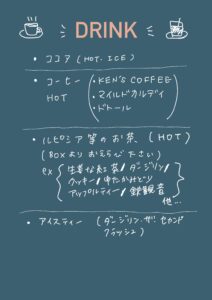 DRINK
・ココア (HOT, ICE)
・コーヒー
HOT
・KEN'S COFFEE
・マイルドカルディ
・ドトール
・ルピシア 等のお茶、(HOT)
(BOXよりおえらびください)
ex
ダージリン/
クッキー/ ゆたかみどり
アップルティー/ 鉄観音
他...
・アイスティー (ダージリン・ザ セカンド
フラッシュ)